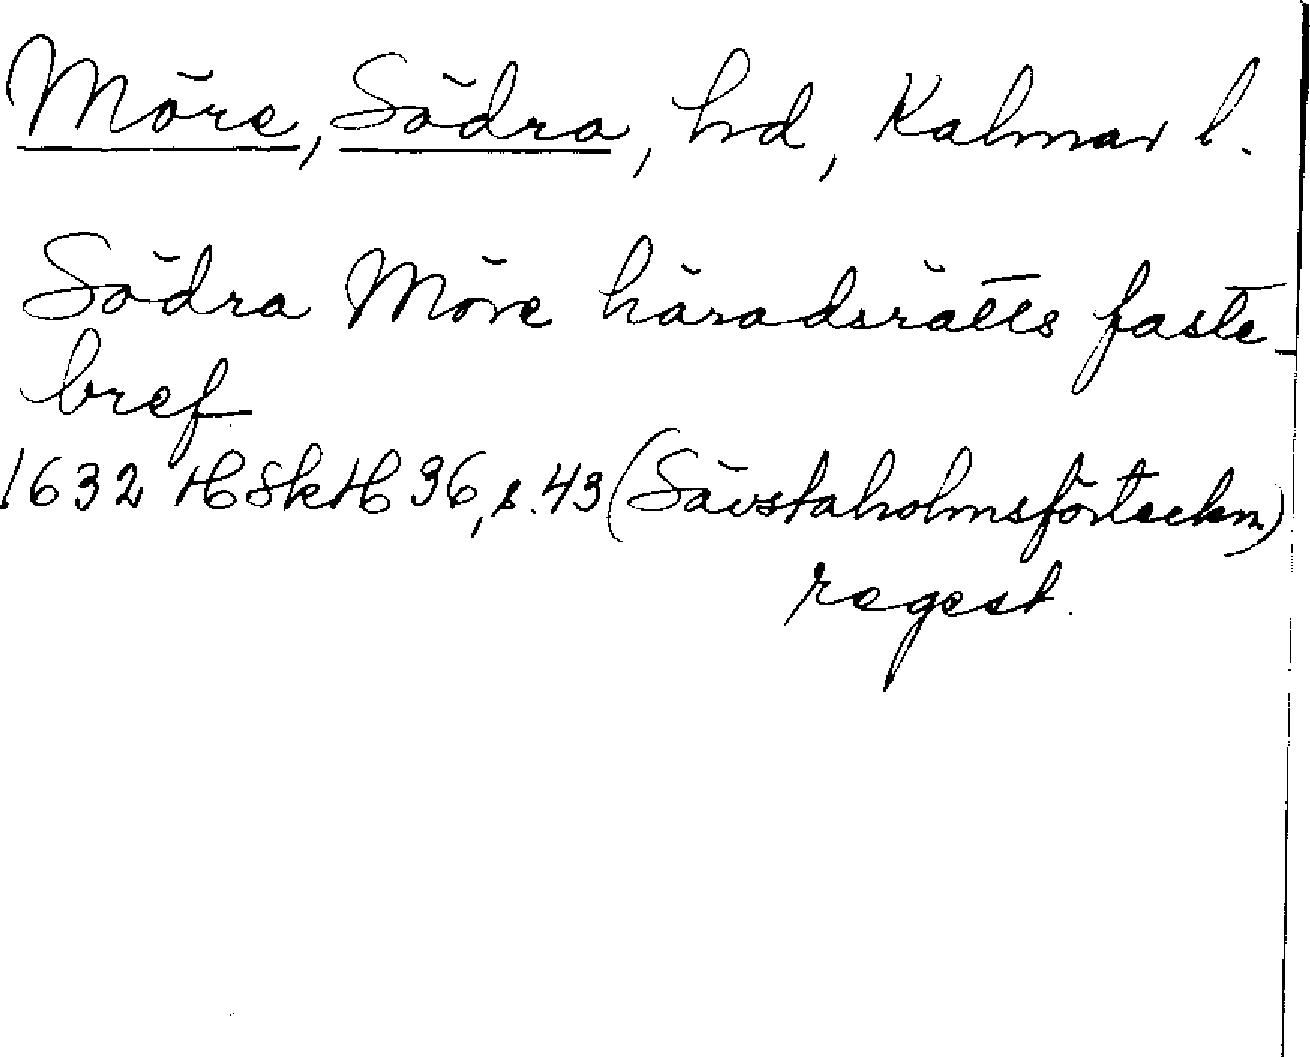 Möre, Södra, hd, Kalmar l.
Södra Möre häradsrätts faste-
bref
1632 HSkH 36, s. 43 (Sävstaholmsförteckn)
regest.